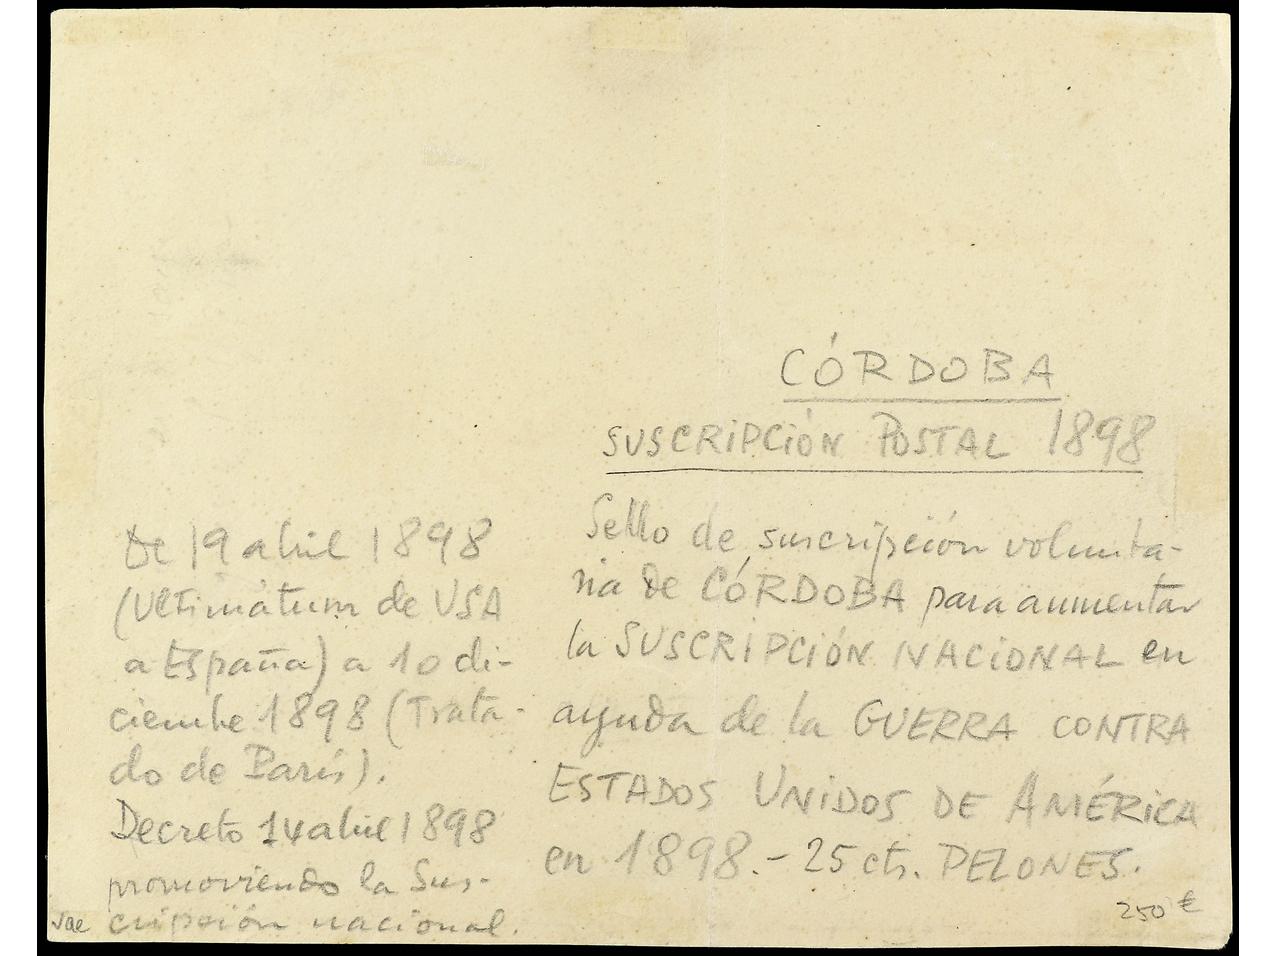 CÓRDOBA
SUSCRIPCIÓN POSTAL 1898
Sello de suscripción volunta-
ria de CÓRDOBA para aumentar
la SUSCRIPCIÓN NACIONAL en
ayuda de la GUERRA CONTRA
ESTADOS UNIDOS DE AMÉRICA
en 1898. - 25 cts. PELONES.
250 €
De 19 abril 1898
(Ultimátum de USA
a España) a 10 di-
ciembre 1898 (Trata-
do de París).
Decreto 14 abril 1898
promoviendo la Sus-
cripción nacional.